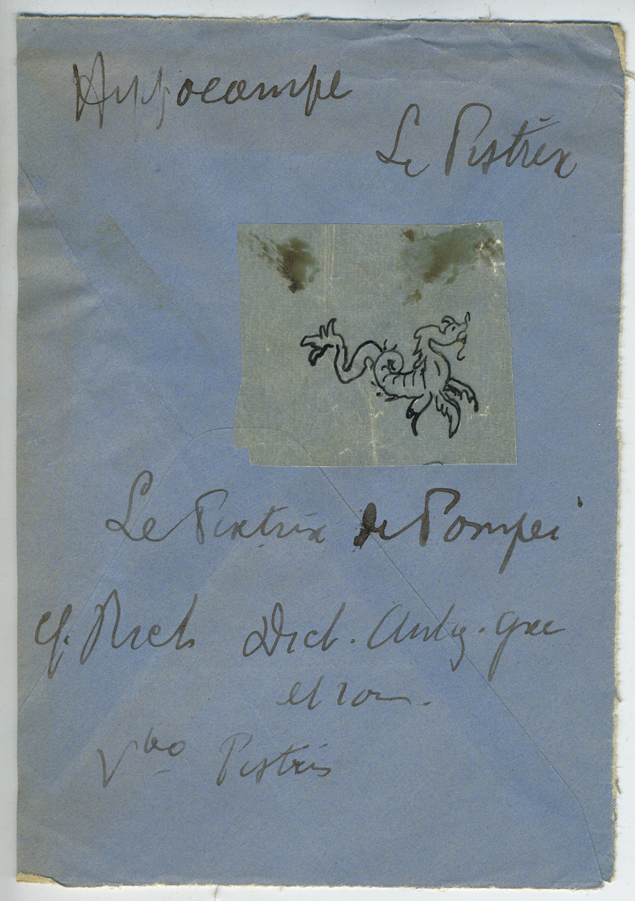 Hippocampe
Le Pistrix
Le Pistrix de Pompei
cf. Rich Dict. Antiq. grec
et rom.
Vbo Pistris